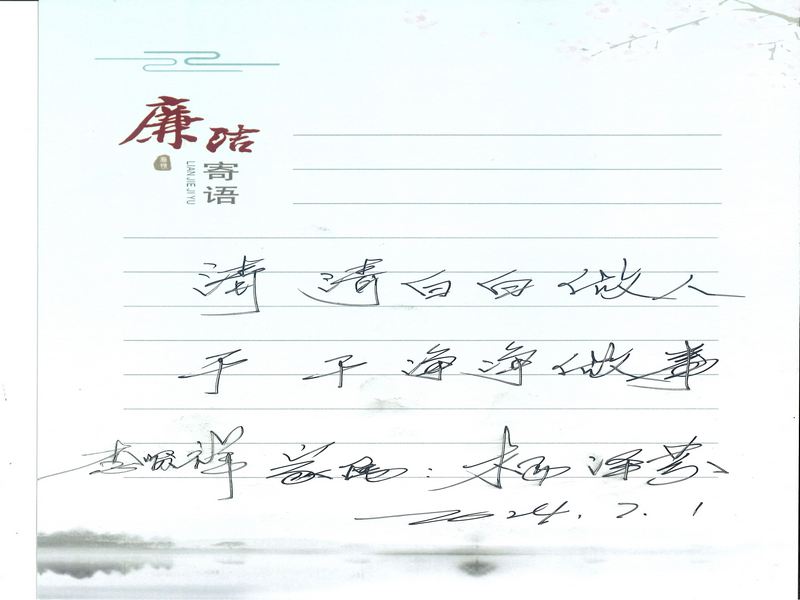 廉洁
寄语
LIAN JIE JI YU
清清白白做人
干干净净做事
家属：
2024.7.1